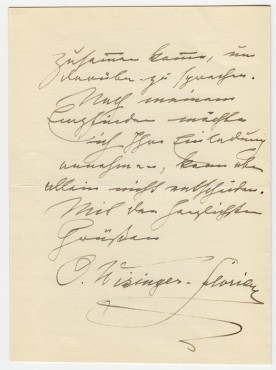 zusammen komme, um
darüber zu sprechen.
Nach meinem
Empfinden möchte
ich Ihre Einladung
annehmen, kann aber
allein nicht entscheiden.
Mit den herzlichsten
Grüßen
O. Wisinger-Florian